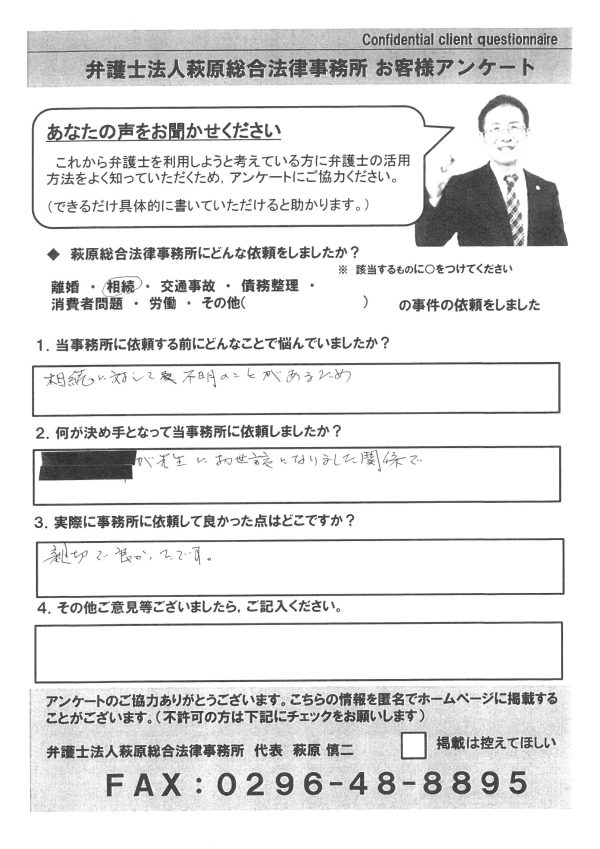 Confidential client questionnaire
弁護士法人萩原総合法律事務所 お客様アンケート
あなたの声をお聞かせください
これから弁護士を利用しようと考えている方に弁護士の活用
方法をよく知っていただくため，アンケートにご協力ください。
（できるだけ具体的に書いていただけると助かります。）
◆ 萩原総合法律事務所にどんな依頼をしましたか？
※ 該当するものに○をつけてください
離婚 ・ 相続 ・ 交通事故 ・ 債務整理 ・
消費者問題 ・ 労働 ・ その他( ) の事件の依頼をしました
１．当事務所に依頼する前にどんなことで悩んでいましたか？
相続に対して不明のことがあるため
２．何が決め手となって当事務所に依頼しましたか？
が先生にお世話になりました関係で
３．実際に事務所に依頼して良かった点はどこですか？
親切で良かったです。
４．その他ご意見等ございましたら，ご記入ください。
アンケートのご協力ありがとうございます。こちらの情報を匿名でホームページに掲載する
ことがございます。（不許可の方は下記にチェックをお願いします）
弁護士法人萩原総合法律事務所 代表 萩原 慎二
掲載は控えてほしい
ＦＡＸ：０２９６-４８-８８９５